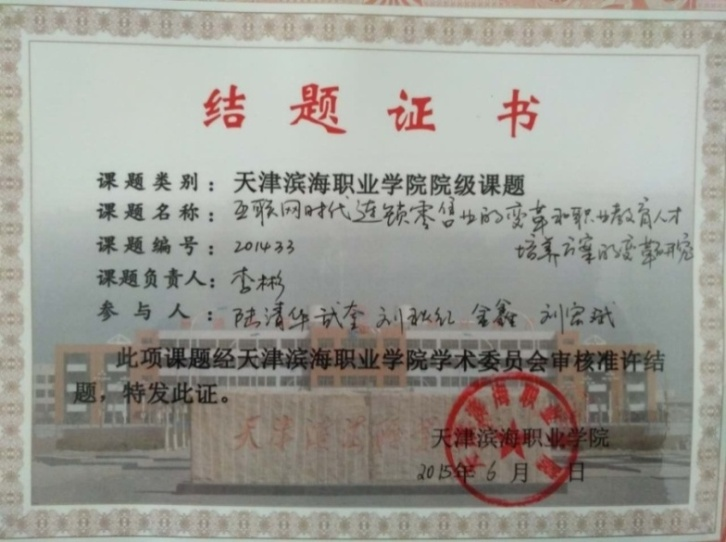 结题证书
课题类别：天津滨海职业学院院级课题
课题名称：互联网时代连锁零售业的变革和职业教育人才
培养方案的变革研究
课题编号：201433
课题负责人：李彬
参与人：陆清华 武奎 刘秋红 金鑫 刘宗斌
此项课题经天津滨海职业学院学术委员会审核准许结
题，特发此证。
天津滨海职业学院
2015年6月 日